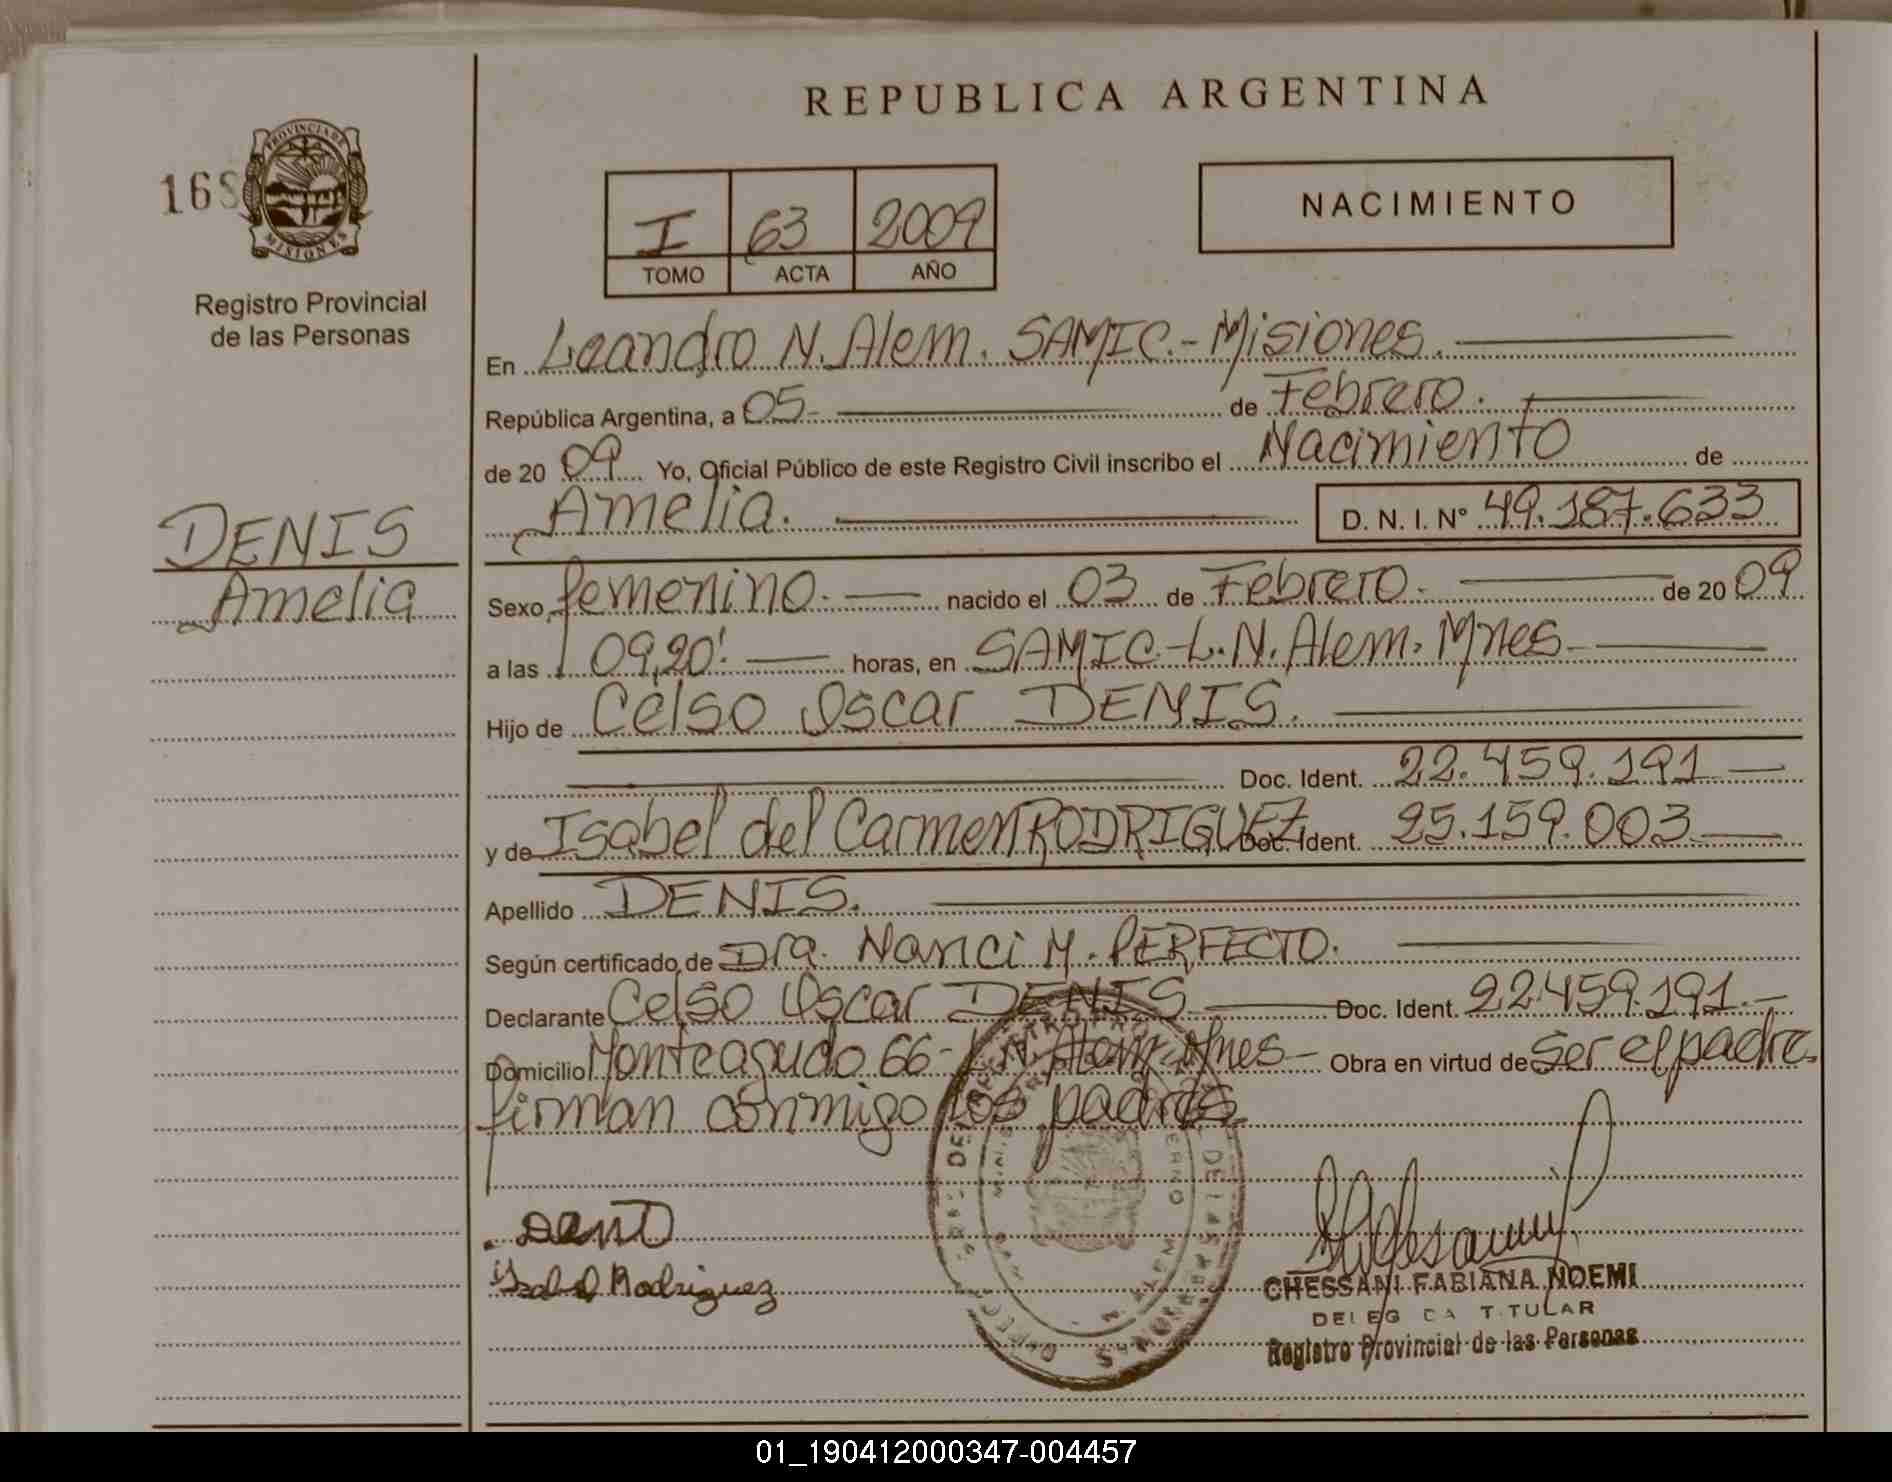 REPUBLICA ARGENTINA
168
PROVINCIA DE
MISIONES
Registro Provincial
de las Personas
I 63 2009
TOMO ACTA AÑO
NACIMIENTO
En Leandro N. Alem. SAMIC.- Misiones.
República Argentina, a 05 de Febrero.
de 20 09 Yo, Oficial Público de este Registro Civil inscribo el Nacimiento de
Amelia. D. N. I. Nº 49.187.633
DENIS
Amelia
Sexo femenino. nacido el 03 de Febrero. de 20 09
a las 09,20'. horas, en SAMIC-L.N. Alem. Mnes
Hijo de Celso Oscar DENIS.
Doc. Ident. 22.459.191
y de Isabel del Carmen RODRIGUEZ Doc. Ident. 25.159.003
Apellido DENIS.
Según certificado de Dra. Nanci M. PERFECTO.
Declarante Celso Oscar DENIS Doc. Ident. 22.459.191.
Domicilio Monteagudo 66- L.N. Alem. Mnes Obra en virtud de ser el padre.
firman conmigo los padres
Isabel Rodriguez
CHESSANI FABIANA NOEMI
TITULAR
Registro Provincial de las Personas
01_190412000347-004457